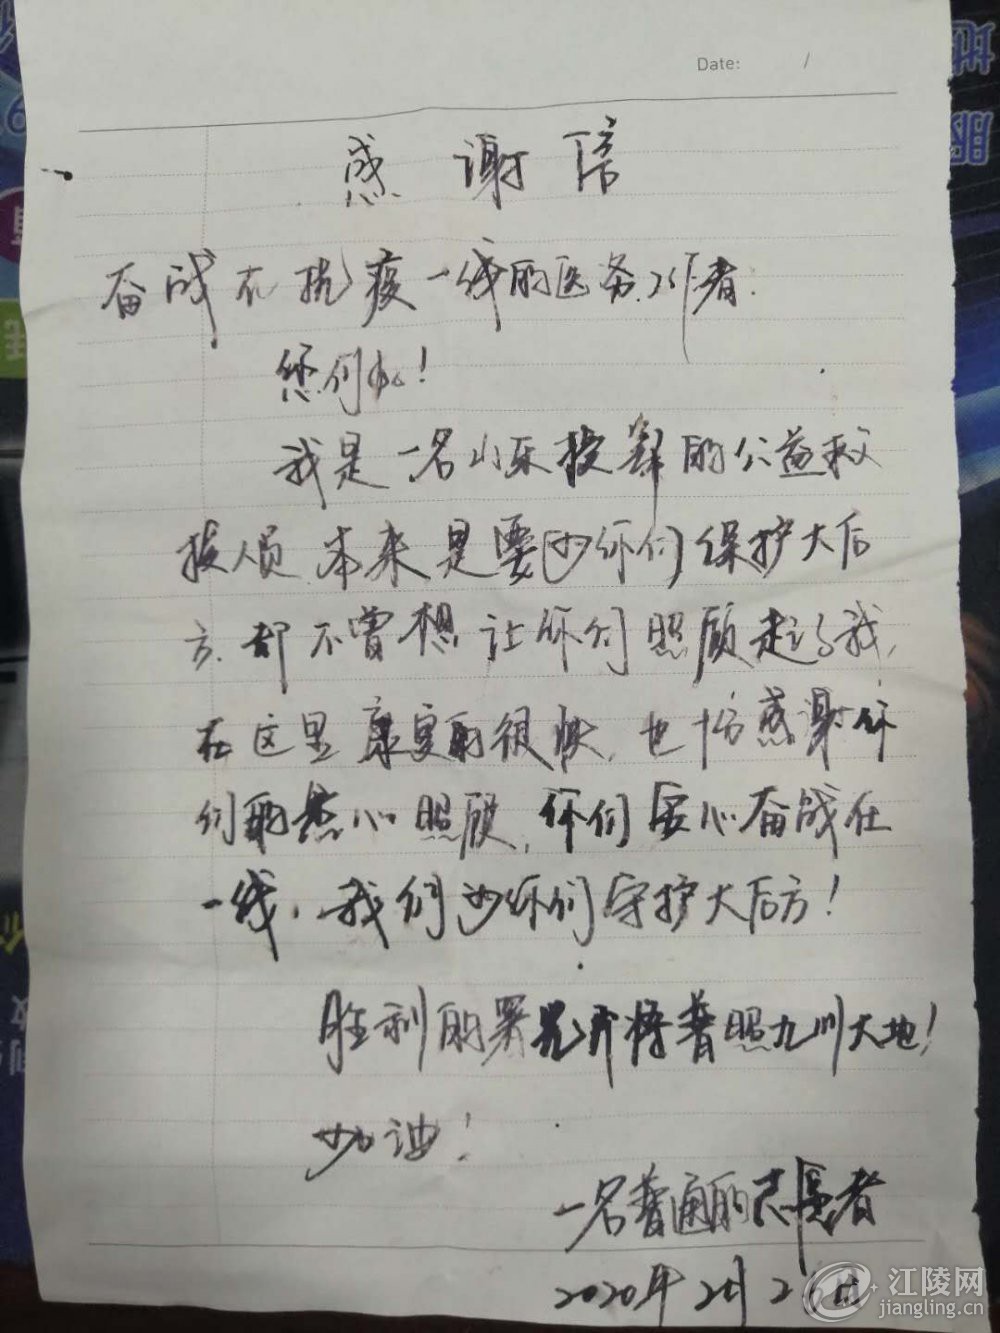 Date: /
感谢信
奋战在抗疫一线的医务工作者:
您们好!
我是一名山东援鄂的公益救
援人员 本来是要为你们保护大后
方.却不曾想让你们照顾起了我,
在这里康复的很快,也十分感谢你
们的热心照顾,你们安心奋战在
一线,我们为你们守护大后方!
胜利的曙光终将普照九州大地!
加油!
一名普通的志愿者
2020年2月2
江陵网
jiangling.cn